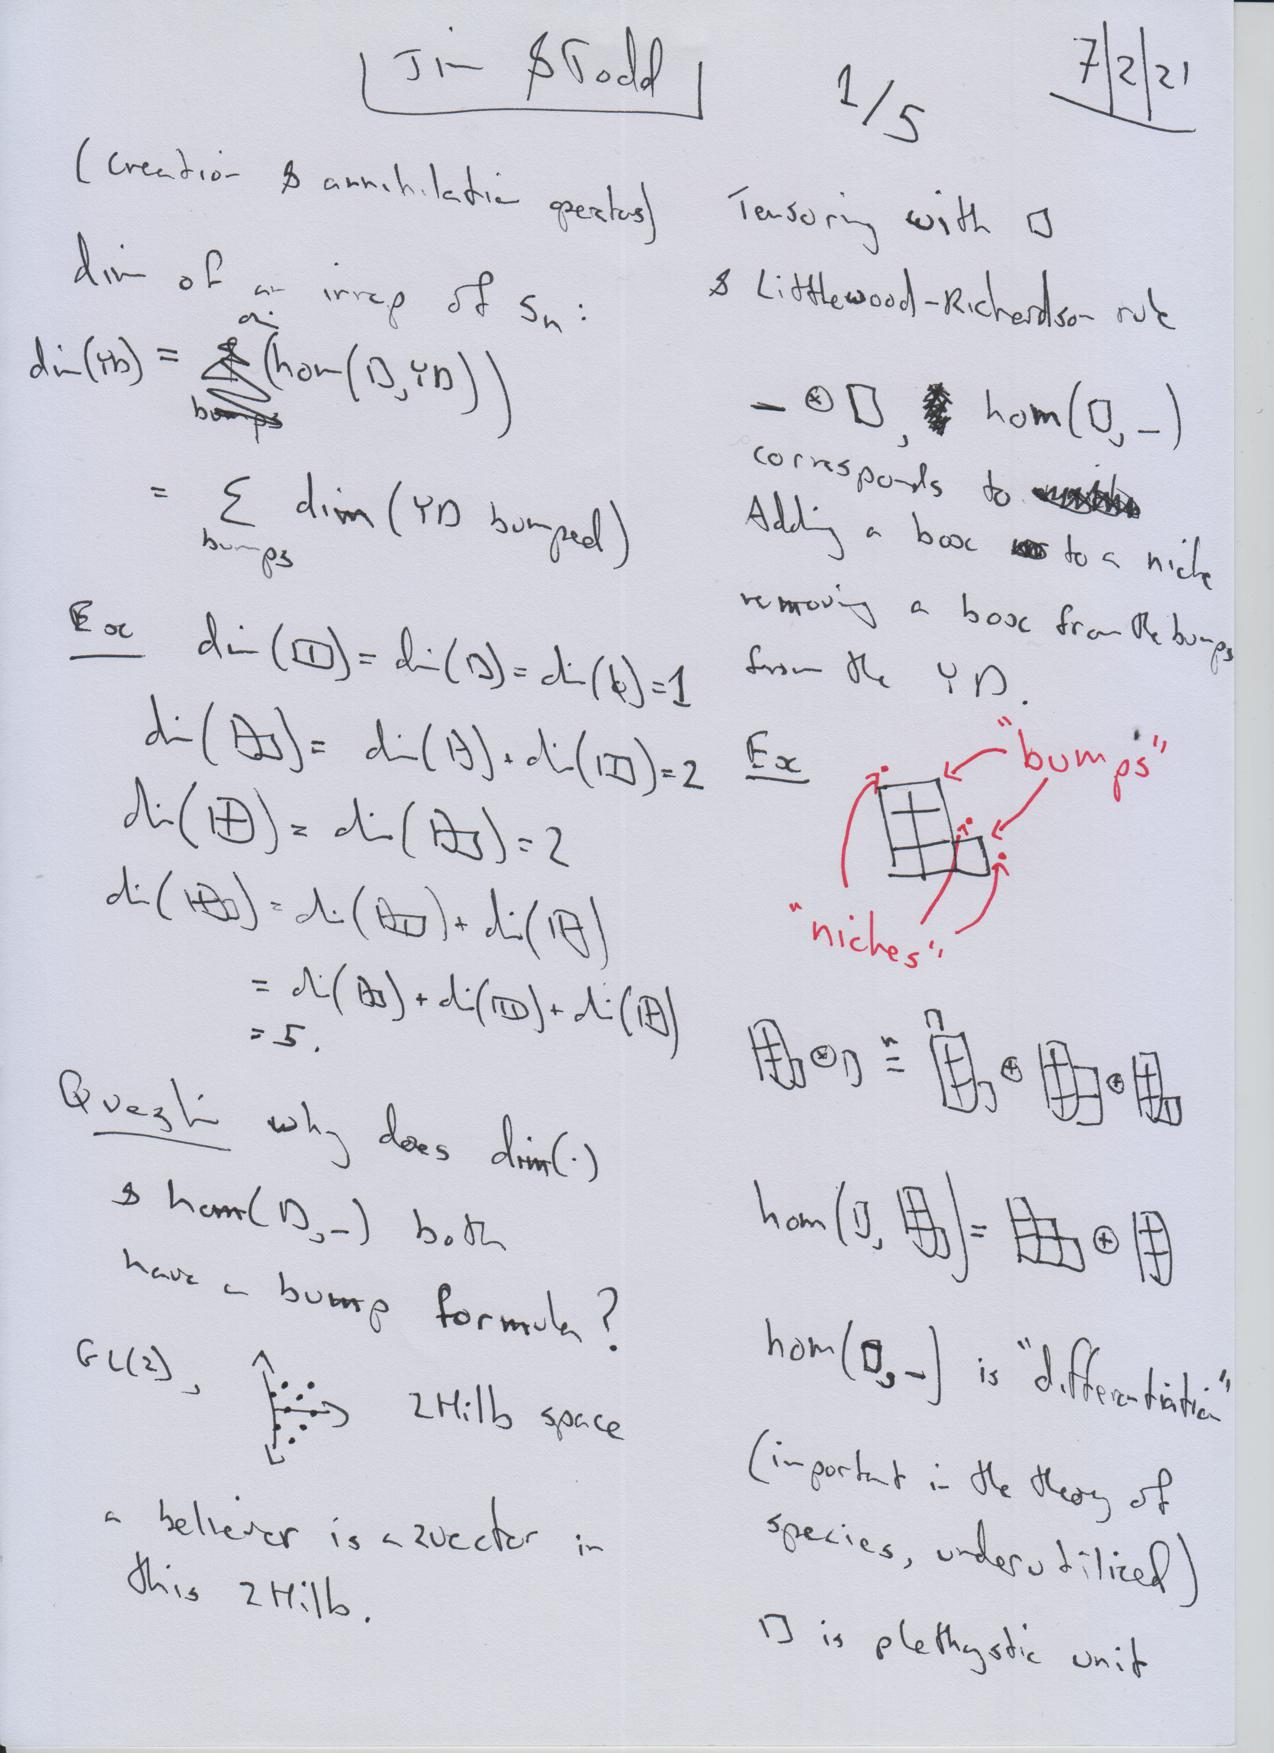 Jim & Todd
1/5
7/2/21
(Creation & annihilation operators)
dim of an irrep of Sn:
dim(YD) = dim(hom(□, YD))
= Σ dim(YD bumped)
bumps
Ex dim(□□) = dim(□) = dim(k) = 1
dim( ) = dim( ) + dim( ) = 2
dim( ) = dim( ) = 2
dim( ) = dim( ) + dim( )
= dim( ) + dim( ) + dim( )
= 5.
Question why does dim(·)
& hom(□, –) both
have a bump formula?
GL(2), 2Hilb space
a believer is a 2vector in
this 2Hilb.
Tensoring with □
& Littlewood-Richardson rule
– ⊗ □, hom(□, –)
corresponds to
Adding a box to a niche
removing a box from the bumps
from the YD.
Ex "bumps"
"niches"
⊗ □ = ⊕ ⊕
hom(□, ) = ⊕
hom(□, –) is "differentiation"
(important in the theory of
species, underutilized)
□ is plethystic unit